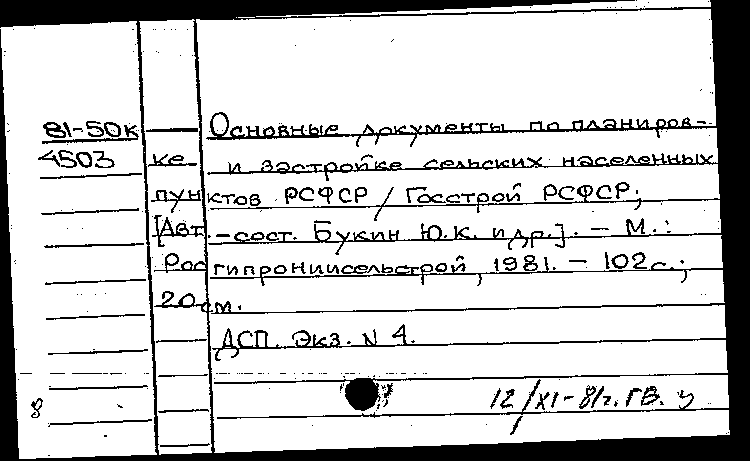 81-50к Основные документы по планиров-
4503 ке и застройке сельских населенных
пунктов РСФСР / Госстрой РСФСР;
[Авт.-сост. Букин Ю.К. и др.]. - М.:
Росгипрониисельстрой, 1981. - 102 с.;
20 см.
ДСП. Экз. N 4.
8 12/XI-81г. ГВ. у